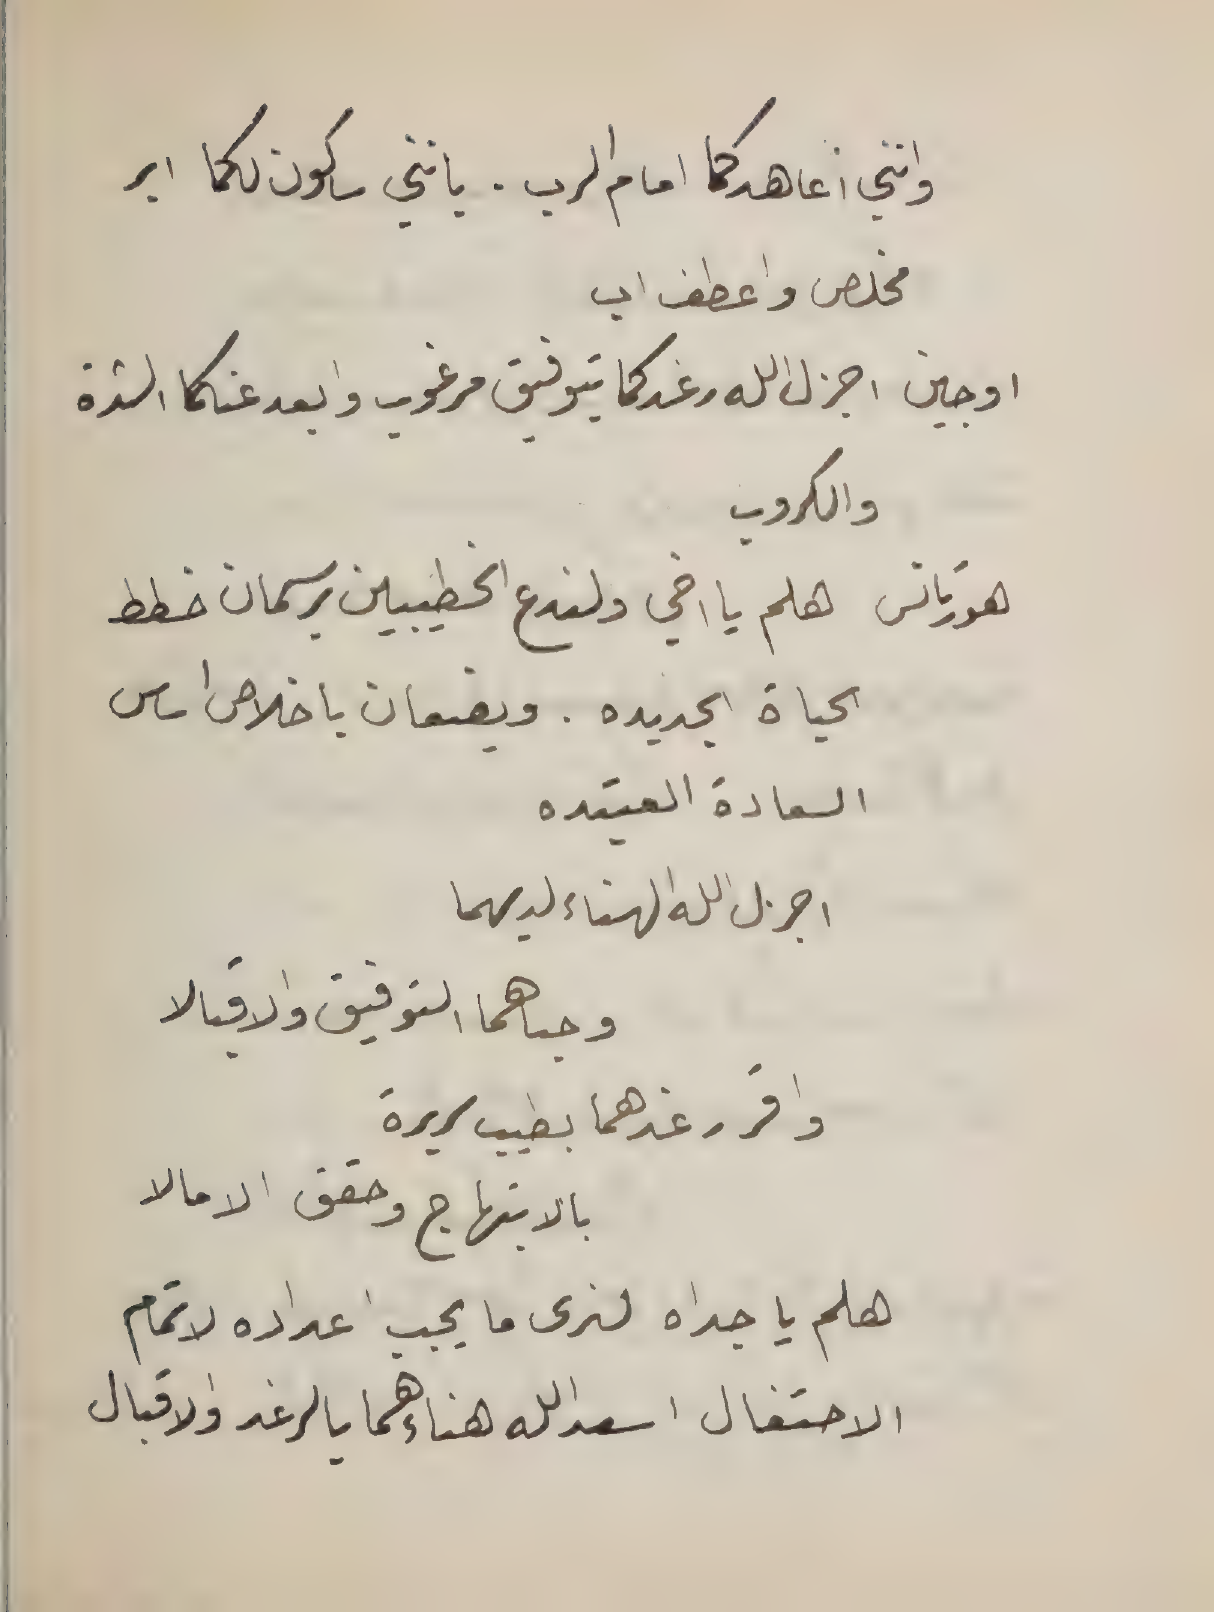 وانني اعاهدكما امام الرب . بانني ساكون لكما ابر
مخلص واعطف اب
اوجين اجزل الله رغدكما بتوفيق مرغوب وابعد عنكما الشدة
والكروب
هورتانس هلم يا اخي ولندع الخطيبين يرسمان خطط
الحياة الجديده . ويضعان باخلاص اساس
السعادة العتيده
اجزل الله الهناء لديهما
وحباهما التوفيق والاقبالا
واقر رغدهما بطيب سريرة
بالابتهاج وحقق الامالا
هلم يا جداه لنرى ما يجب اعداده لاتمام
الاحتفال اسعد الله هناءهما بالرغد والاقبال